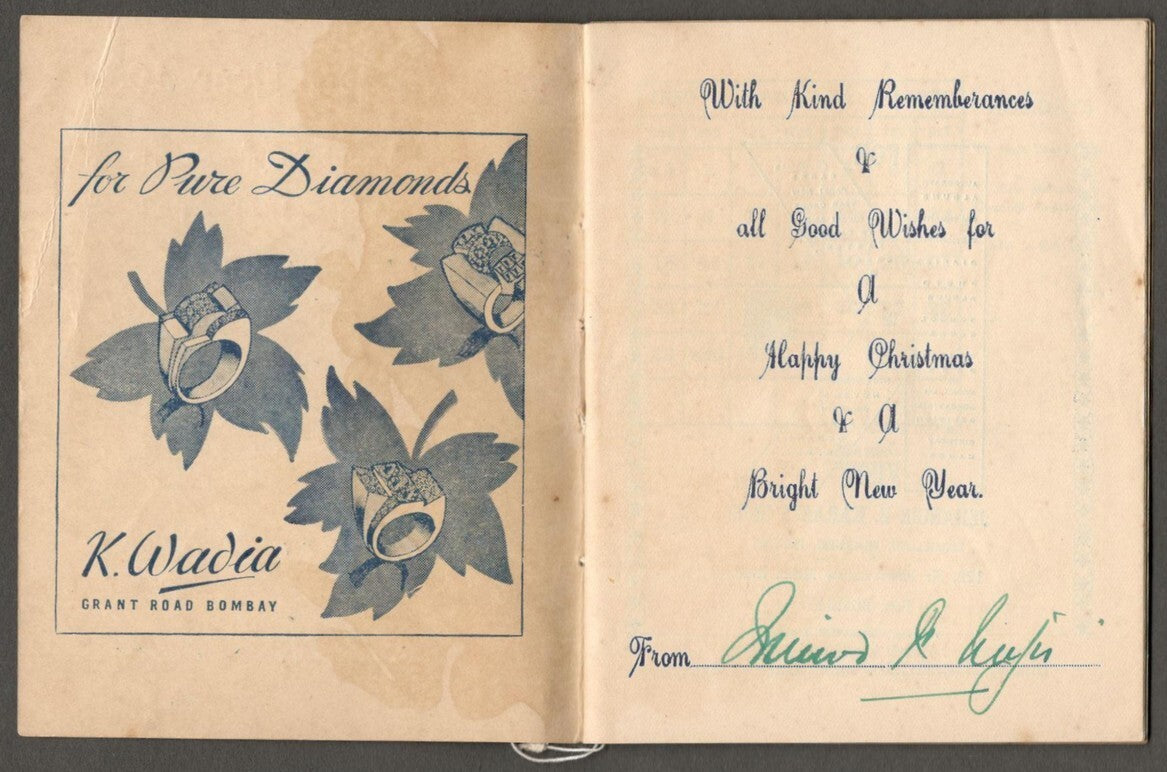 for Pure Diamonds
K. Wadia
GRANT ROAD BOMBAY
With Kind Rememberances
&
all Good Wishes for
A
Happy Christmas
& A
Bright New Year.
From